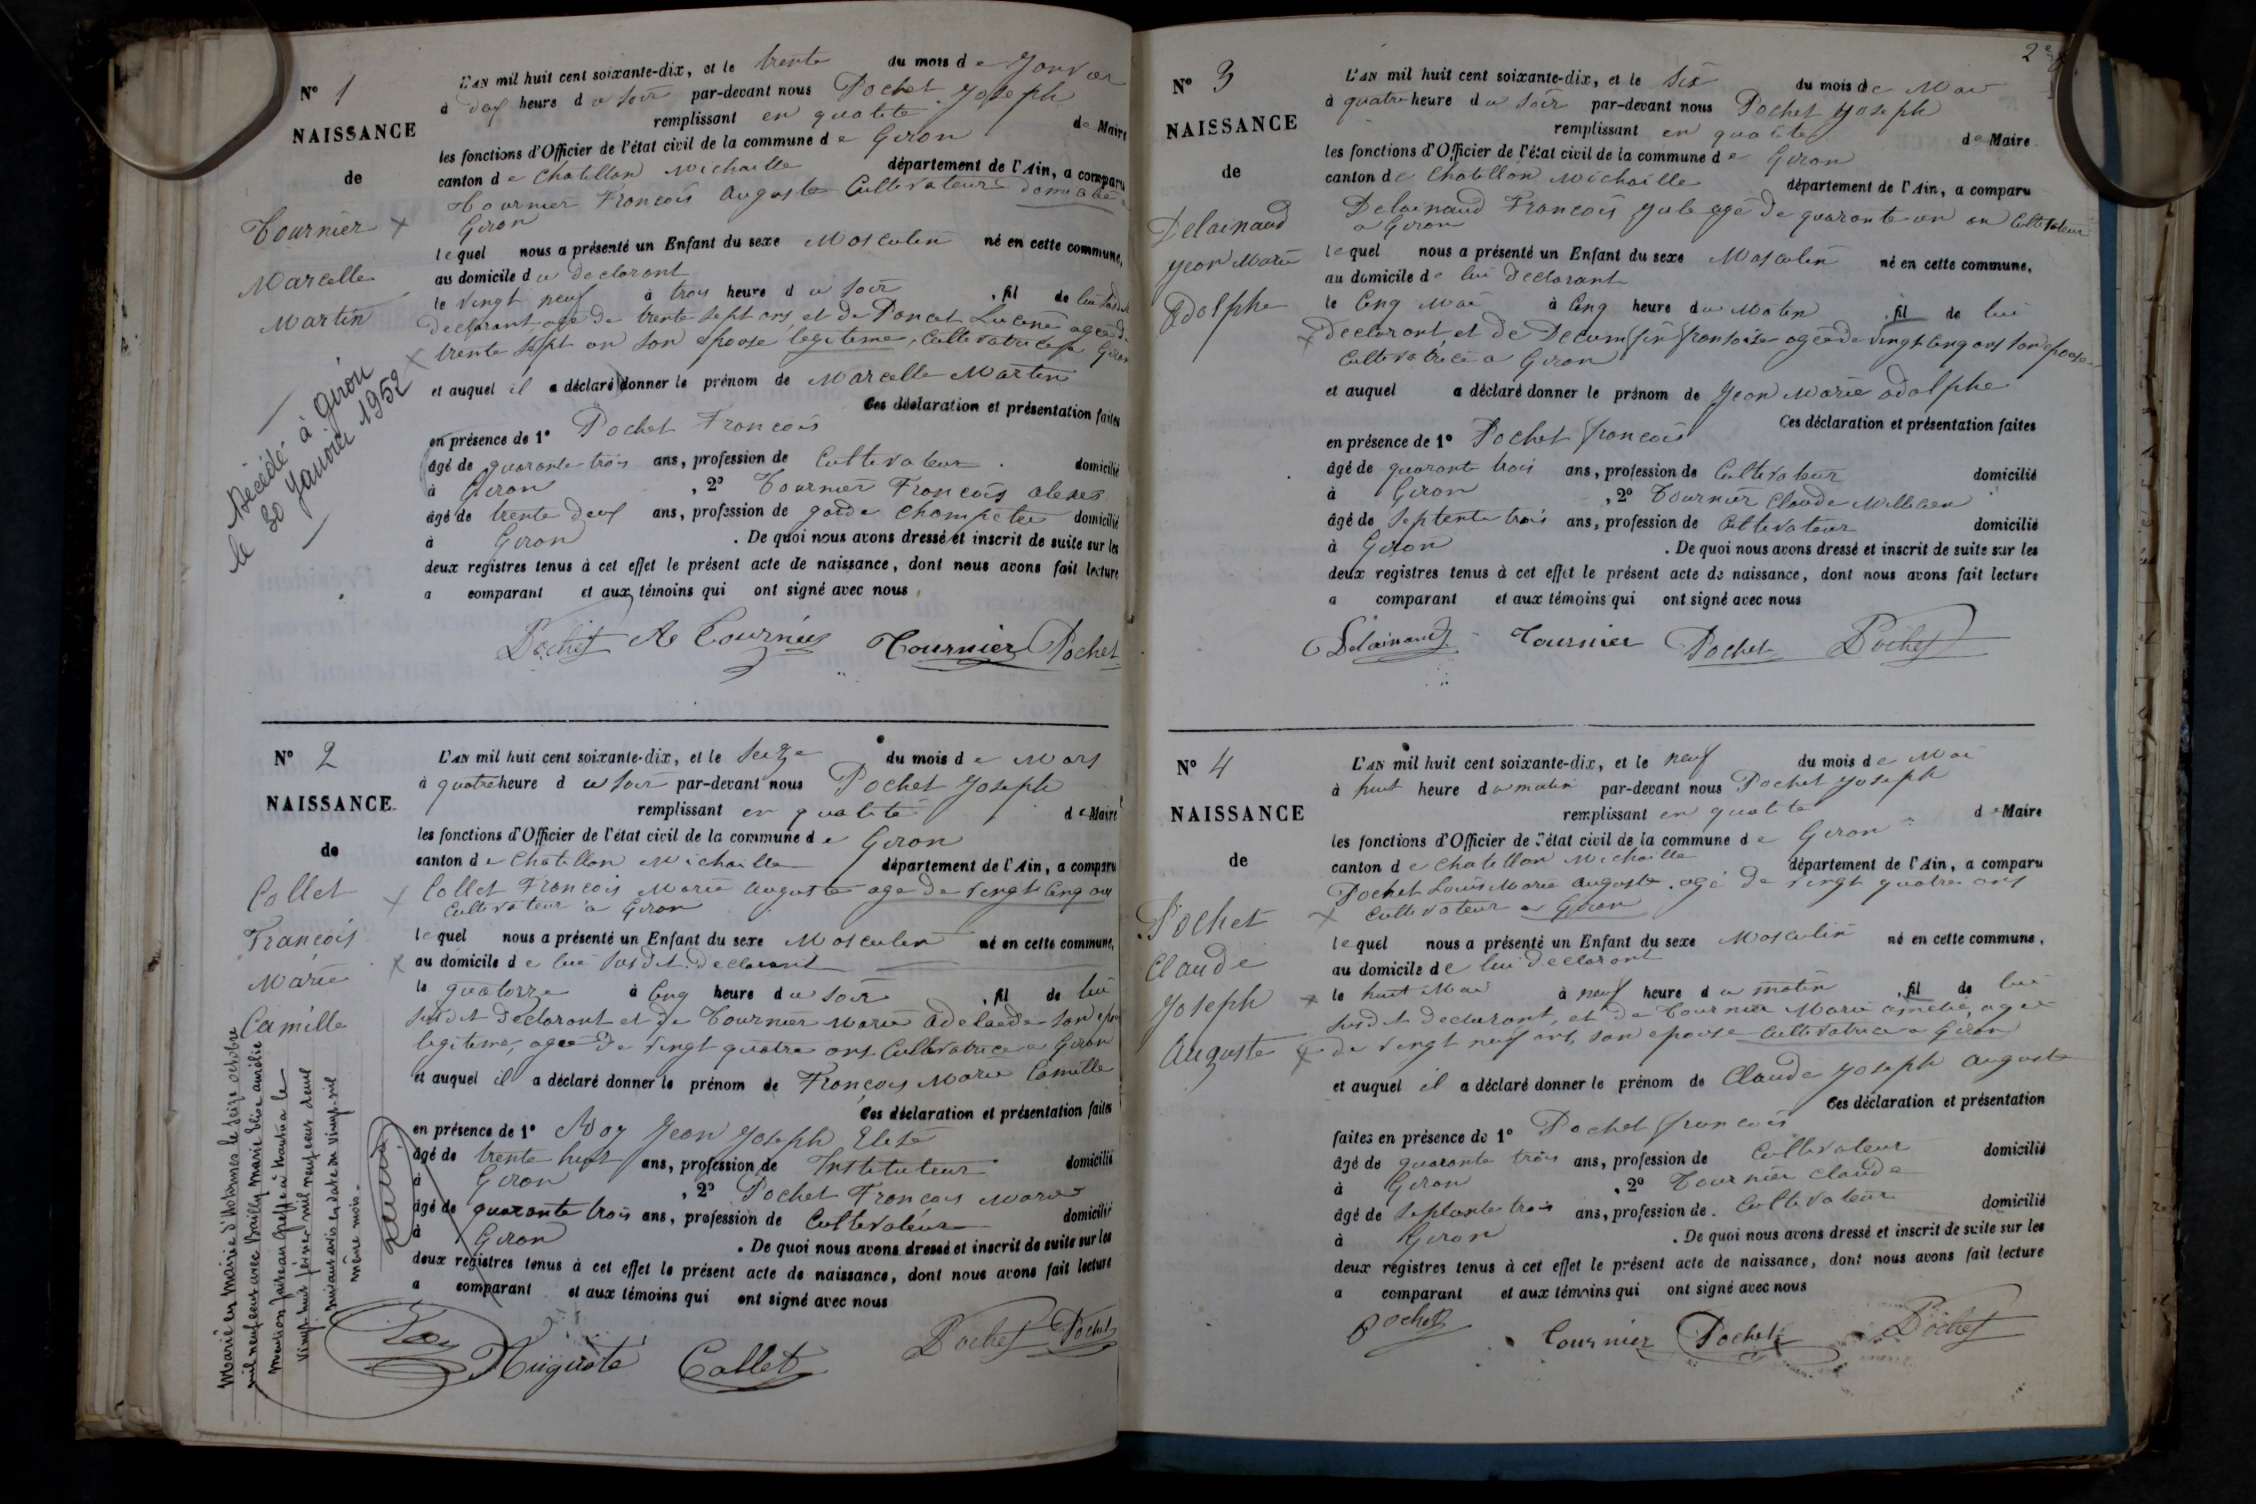 N° 1
NAISSANCE
de
Tournier
Marcelle
Martin
Décédé à Giron
le 30 Janvier 1952
L'AN mil huit cent soixante-dix, et le trente du mois de Janvier
à dix heure du soir par-devant nous Pochet Joseph
remplissant en qualité de Maire
les fonctions d'Officier de l'état civil de la commune de Giron
canton de Chatillon Michaille département de l'Ain, a comparu
Tournier François Auguste Cultivateur domicilié
Giron
lequel nous a présenté un Enfant du sexe Masculin né en cette commune,
au domicile du declarant
le vingt neuf à trois heure du soir, fil de lui susdit
declarant agé de trente sept ans, et de Poncet Lucine agée de
trente sept an son epouse legitime, Cultivatrice a Giron
et auquel il a déclaré donner le prénom de Marcelle Martin
Ces déclaration et présentation faites
en présence de 1° Pochet François
âgé de quarante trois ans, profession de Cultivateur domicilié
à Giron, 2° Tournier François Alexis
âgé de trente deux ans, profession de garde champetre domicilié
à Giron. De quoi nous avons dressé et inscrit de suite sur les
deux registres tenus à cet effet le présent acte de naissance, dont nous avons fait lecture
a comparant et aux témoins qui ont signé avec nous
Pochet A Tournier Tournier Pochet
N° 2
NAISSANCE.
de
Collet
François
Marie
Camille
Marié en mairie d'Hotonnes le seize octobre
mil neuf cent avec Bailly Marie Elise Aurélie
Mention faite au Greffe à Nantua le
vingt huit février mil neuf cent
suivant avis en date du vingt
même mois.
L'AN mil huit cent soixante-dix, et le seize du mois de Mars
à quatre heure du soir par-devant nous Pochet Joseph
remplissant en qualité de Maire
les fonctions d'Officier de l'état civil de la commune de Giron
canton de Chatillon Michaille département de l'Ain, a comparu
Collet François Marie Auguste age de vingt cinq ans
Cultivateur a Giron
lequel nous a présenté un Enfant du sexe Masculin né en cette commune,
au domicile de lui susdit declarant
le quatorze à cinq heure du soir, fil de lui
susdit declarant et de Tournier Marie Adelaede son epou
legitime, agée de vingt quatre ans Cultivatrice a Giron
et auquel il a déclaré donner le prénom de François Marie Camille
Ces déclaration et présentation faites
en présence de 1° Roy Jean Joseph Elisé
âgé de trente huit ans, profession de Instituteur domicilié
à Giron, 2° Pochet François Marie
âgé de quarante trois ans, profession de Cultivateur domicilié
à Giron. De quoi nous avons dressé et inscrit de suite sur les
deux registres tenus à cet effet le présent acte de naissance, dont nous avons fait lecture
a comparant et aux témoins qui ont signé avec nous
Roy Auguste Collet Pochet Pochet
2e
N° 3
NAISSANCE
de
Delainaud
Jean Marie
Adolphe
L'AN mil huit cent soixante-dix, et le six du mois de Mai
à quatre heure du soir par-devant nous Pochet Joseph
remplissant en qualité de Maire
les fonctions d'Officier de l'état civil de la commune de Giron
canton de Chatillon Michaille département de l'Ain, a comparu
Delainaud François Jule agé de quarante un an Cultivateur
a Giron
lequel nous a présenté un Enfant du sexe Masculin né en cette commune,
au domicile de lui declarant
le Cinq Mai à Cinq heure du Matin, fil de lui
declarant et de françoise agée de vingt cinq ans son epouse
Cultivatrice a Giron
et auquel a déclaré donner le prénom de Jean Marie Adolphe
Ces déclaration et présentation faites
en présence de 1° Pochet françois
âgé de quarante trois ans, profession de Cultivateur domicilié
à Giron, 2° Tournier Claude
âgé de septente trois ans, profession de Cultivateur domicilié
à Giron. De quoi nous avons dressé et inscrit de suite sur les
deux registres tenus à cet effet le présent acte de naissance, dont nous avons fait lecture
a comparant et aux témoins qui ont signé avec nous
Delainaud Tournier Pochet Pochet
N° 4
NAISSANCE
de
Pochet
Claude
Joseph
Auguste
L'AN mil huit cent soixante-dix, et le neuf du mois de Mai
à huit heure du matin par-devant nous Pochet Joseph
remplissant en qualite de Maire
les fonctions d'Officier de l'état civil de la commune de Giron
canton de Chatillon Michaille département de l'Ain, a comparu
Pochet Louis Marie Auguste agé de vingt quatre ans
Cultivateur a Giron
lequel nous a présenté un Enfant du sexe Masculin né en cette commune,
au domicile de lui declarant
le huit Mai à neuf heure du matin, fil de lui
susdit declarant, et de Tournier Marie Amélie, agée
de vingt neuf ans, son epouse Cultivatrice a Giron
et auquel il a déclaré donner le prénom de Claude Joseph Auguste
Ces déclaration et présentation
faites en présence de 1° Pochet françois
âgé de quarante trois ans, profession de Cultivateur domicilié
à Giron, 2° Tournier Claude
âgé de septante trois ans, profession de. Cultivateur domicilié
à Giron. De quoi nous avons dressé et inscrit de suite sur les
deux registres tenus à cet effet le présent acte de naissance, dont nous avons fait lecture
a comparant et aux témoins qui ont signé avec nous
Pochet Tournier Pochet Pochet